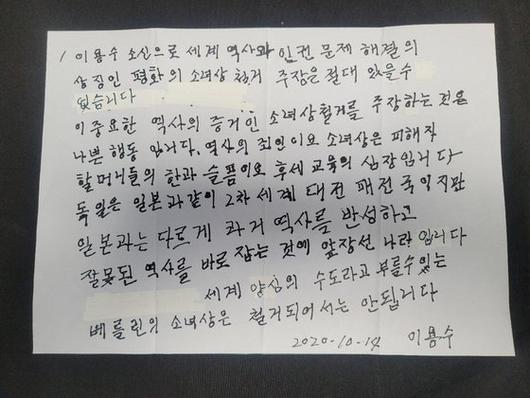 이용수 소신으로 세계 역사와 인권 문제 해결의
상징인 평화의 소녀상 철거 주장은 절대 있을수
없습니다
이중요한 역사의 증거인 소녀상철거를 주장하는 것은
나쁜 행동 입니다. 역사의 죄인이요 소녀상은 피해자
할머니들의 한과 슬픔이요 후세 교육의 심장입니다
독일은 일본과같이 2차 세계 대전 패전국이지만
일본과는 다르게 과거 역사를 반성하고
잘못된 역사를 바로 잡는 것에 앞장선 나라 입니다
세계 양심의 수도라고 부를수있는
베를린의 소녀상은 철거되어서는 안됩니다
2020-10-14 이용수